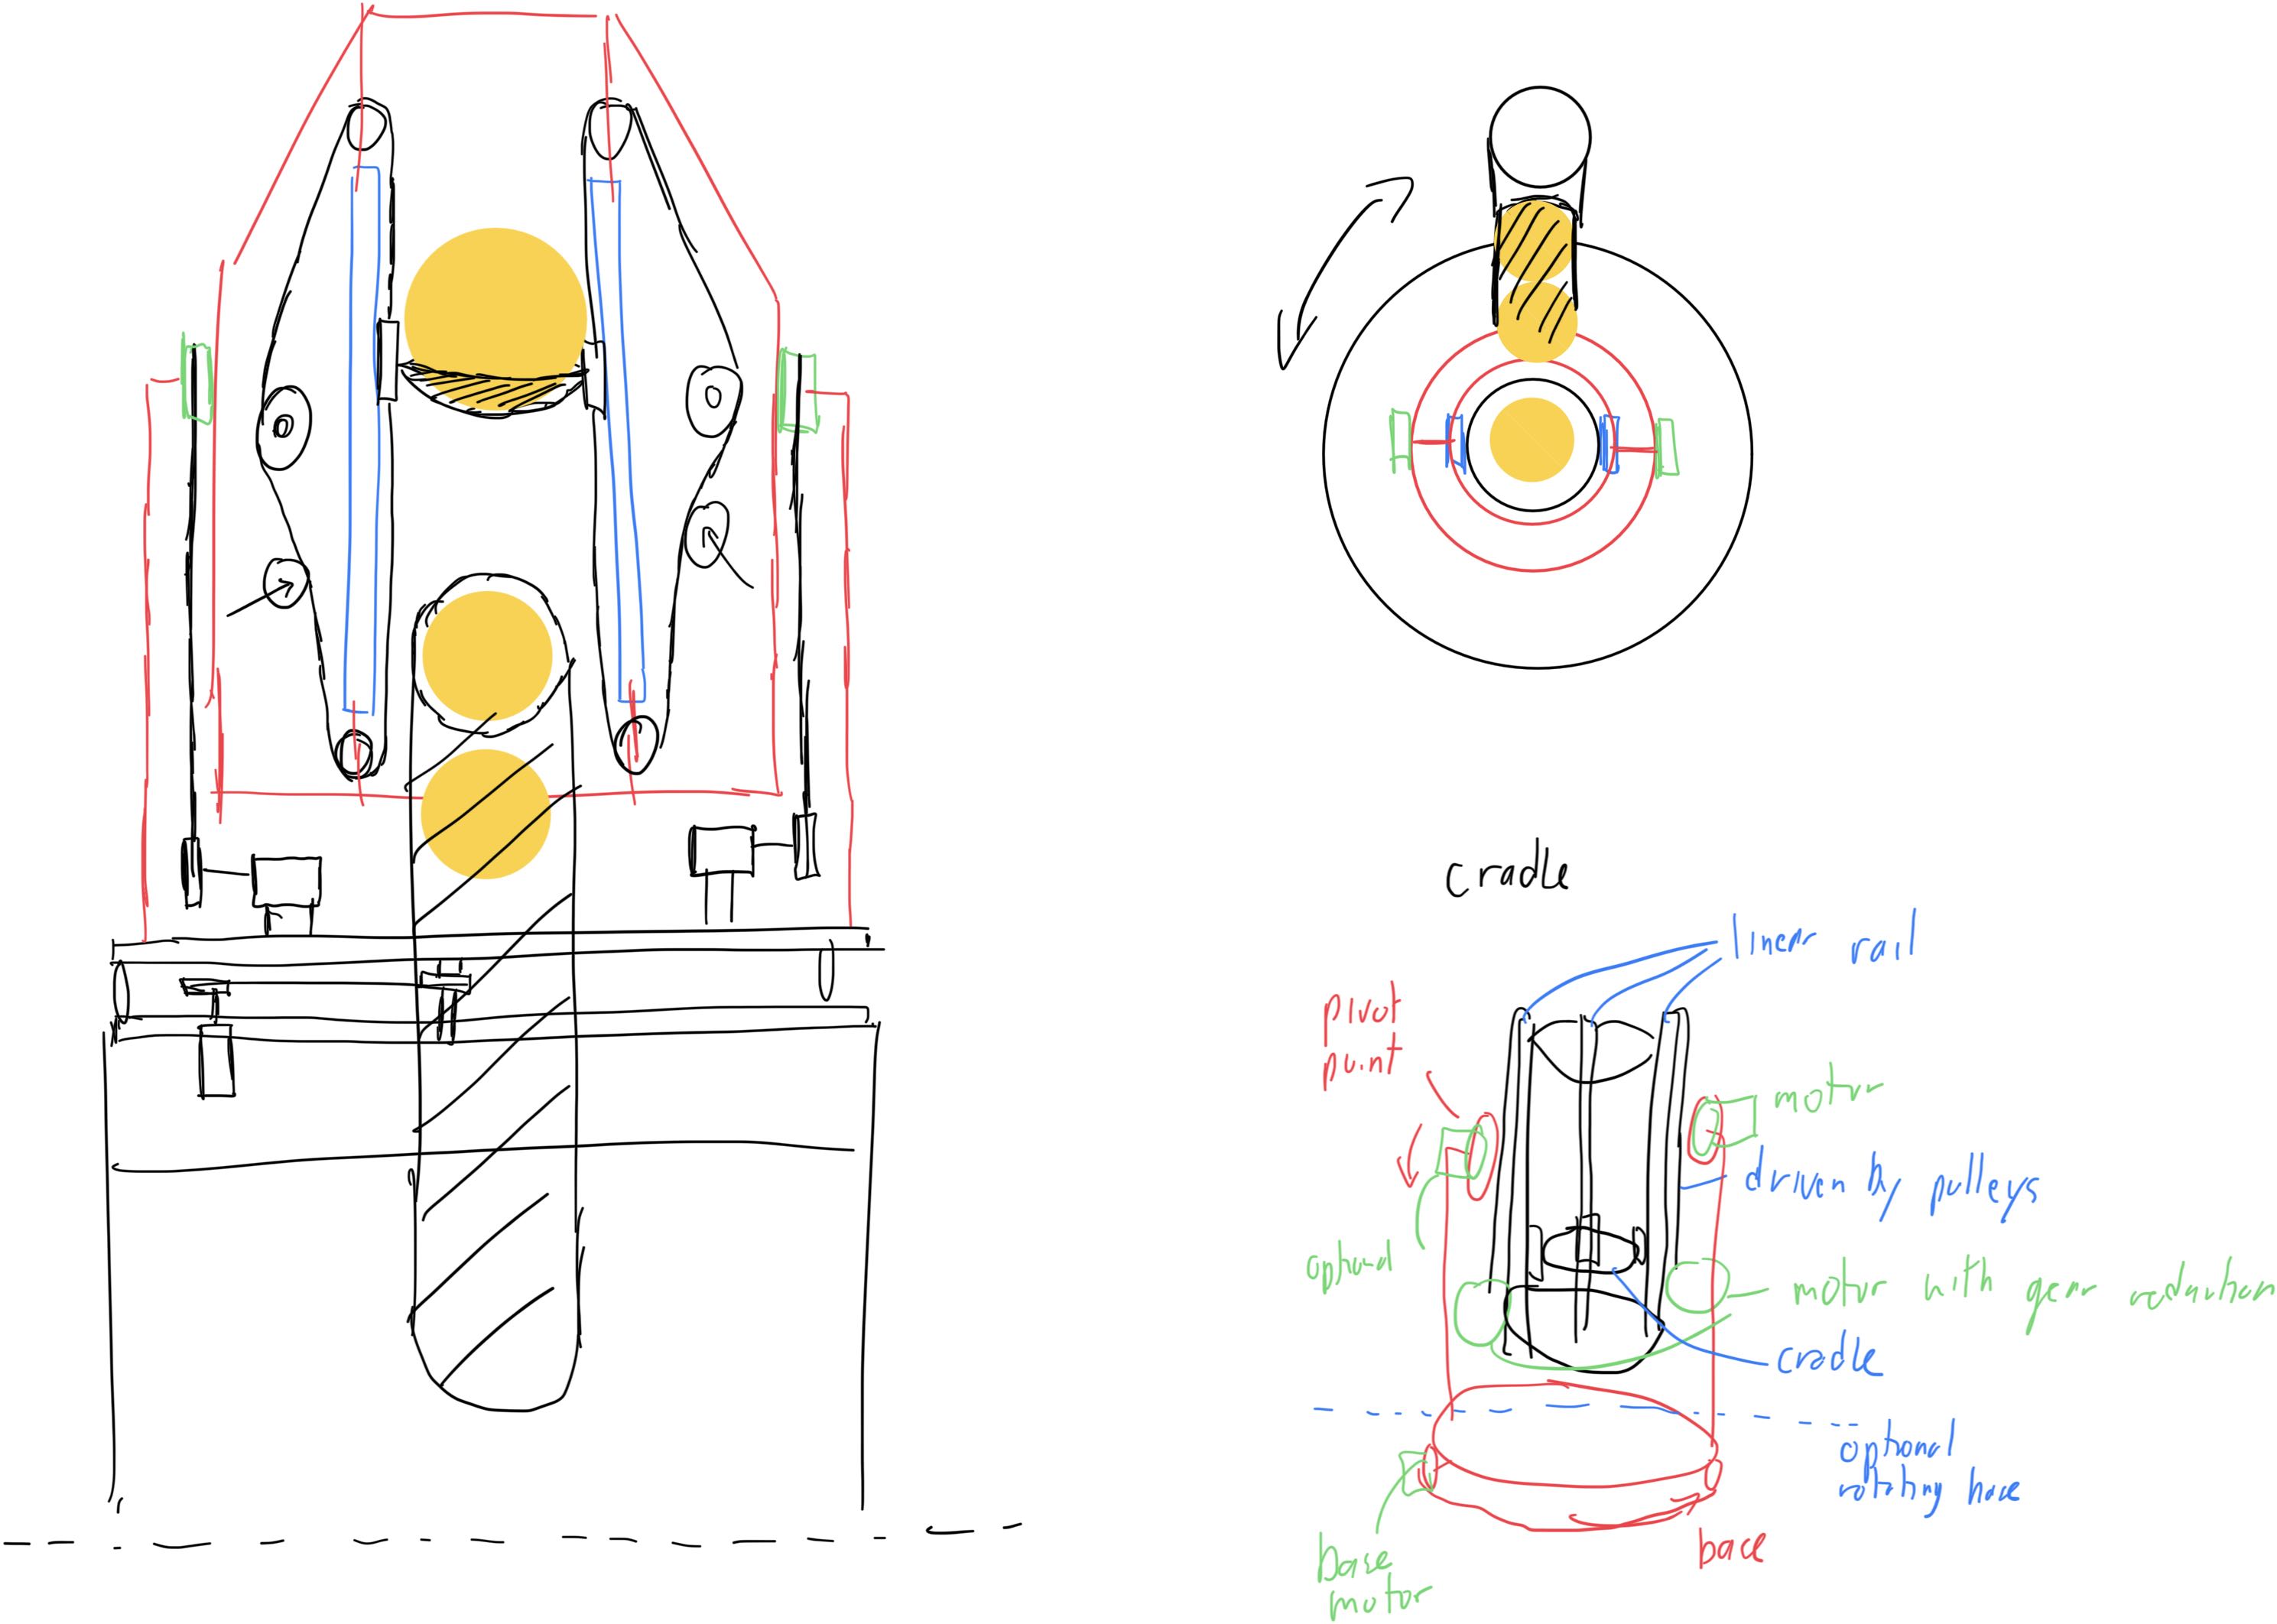 cradle
linear rail
pivot
point
motor
driven by pulleys
optional
motor with gear reduction
cradle
optional
rotating base
base
base
motor